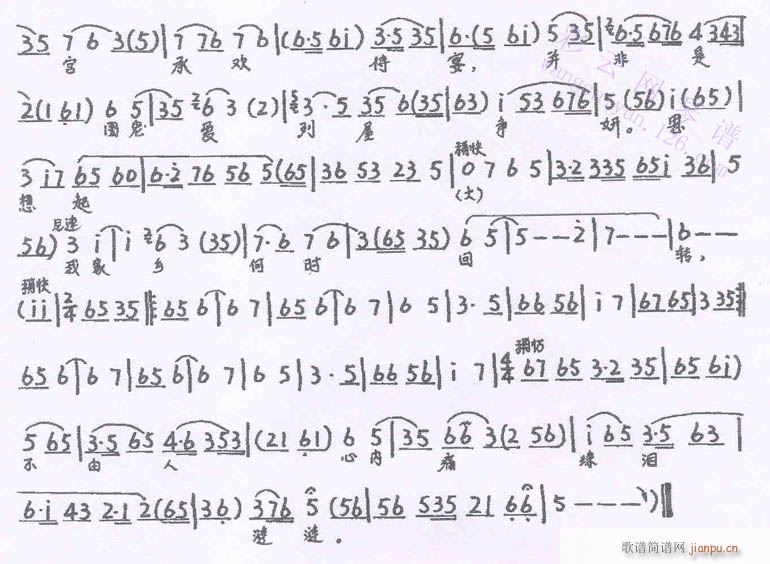 35 7 6 3(5) | 7 76 76 | (6·5 6i) 3·5 35 | 6·(5 6i) 5 35 | 6·5 676 4 343 |
宫 承 欢 侍 宴， 并 非 是
2(1 61) 6 5 | 35 6 3 (2) | 3·5 35 6(35 | 63) i 53 676 | 5 (56) i(65) |
图 宠 爱 列 屋 争 妍。 恩
3 i7 65 60 | 6·2 76 56 5(65 | 36 53 23 5 | 0 7 6 5 | 3·2 335 65i 36 | 5
想 起 稍快 (大)
56) 3 i | i 6 3 (35) | 7·6 7 6 | 3(65 35) 6 5 | 5 - - 2 | 7 - - - | 6 - -
尼速 我 家 乡 何 时 回 转，
稍快
(ii | 2/4 65 35 ‖: 65 6 | 6 7 | 65 6 | 6 7 | 6 5 | 3·5 | 66 56 | i 7 | 67 65 | 3 35 :‖
65 6 | 6 7 | 65 6 | 6 7 | 6 5 | 3·5 | 66 56 | i 7 | 4/4 67 65 3·2 35 | 65 6i)
5 65 | 3·5 65 4·6 353 | (21 61) 6 5 | 35 66 3(2 56) | i 65 3·5 63 |
不 由 人 心 内 痛 珠 泪
6·i 43 2·1 2(65 | 36) 376 5 (56 | 56 535 21 66 | 5 - - - ) ‖
涟 涟。
歌谱简谱网 jianpu.cn